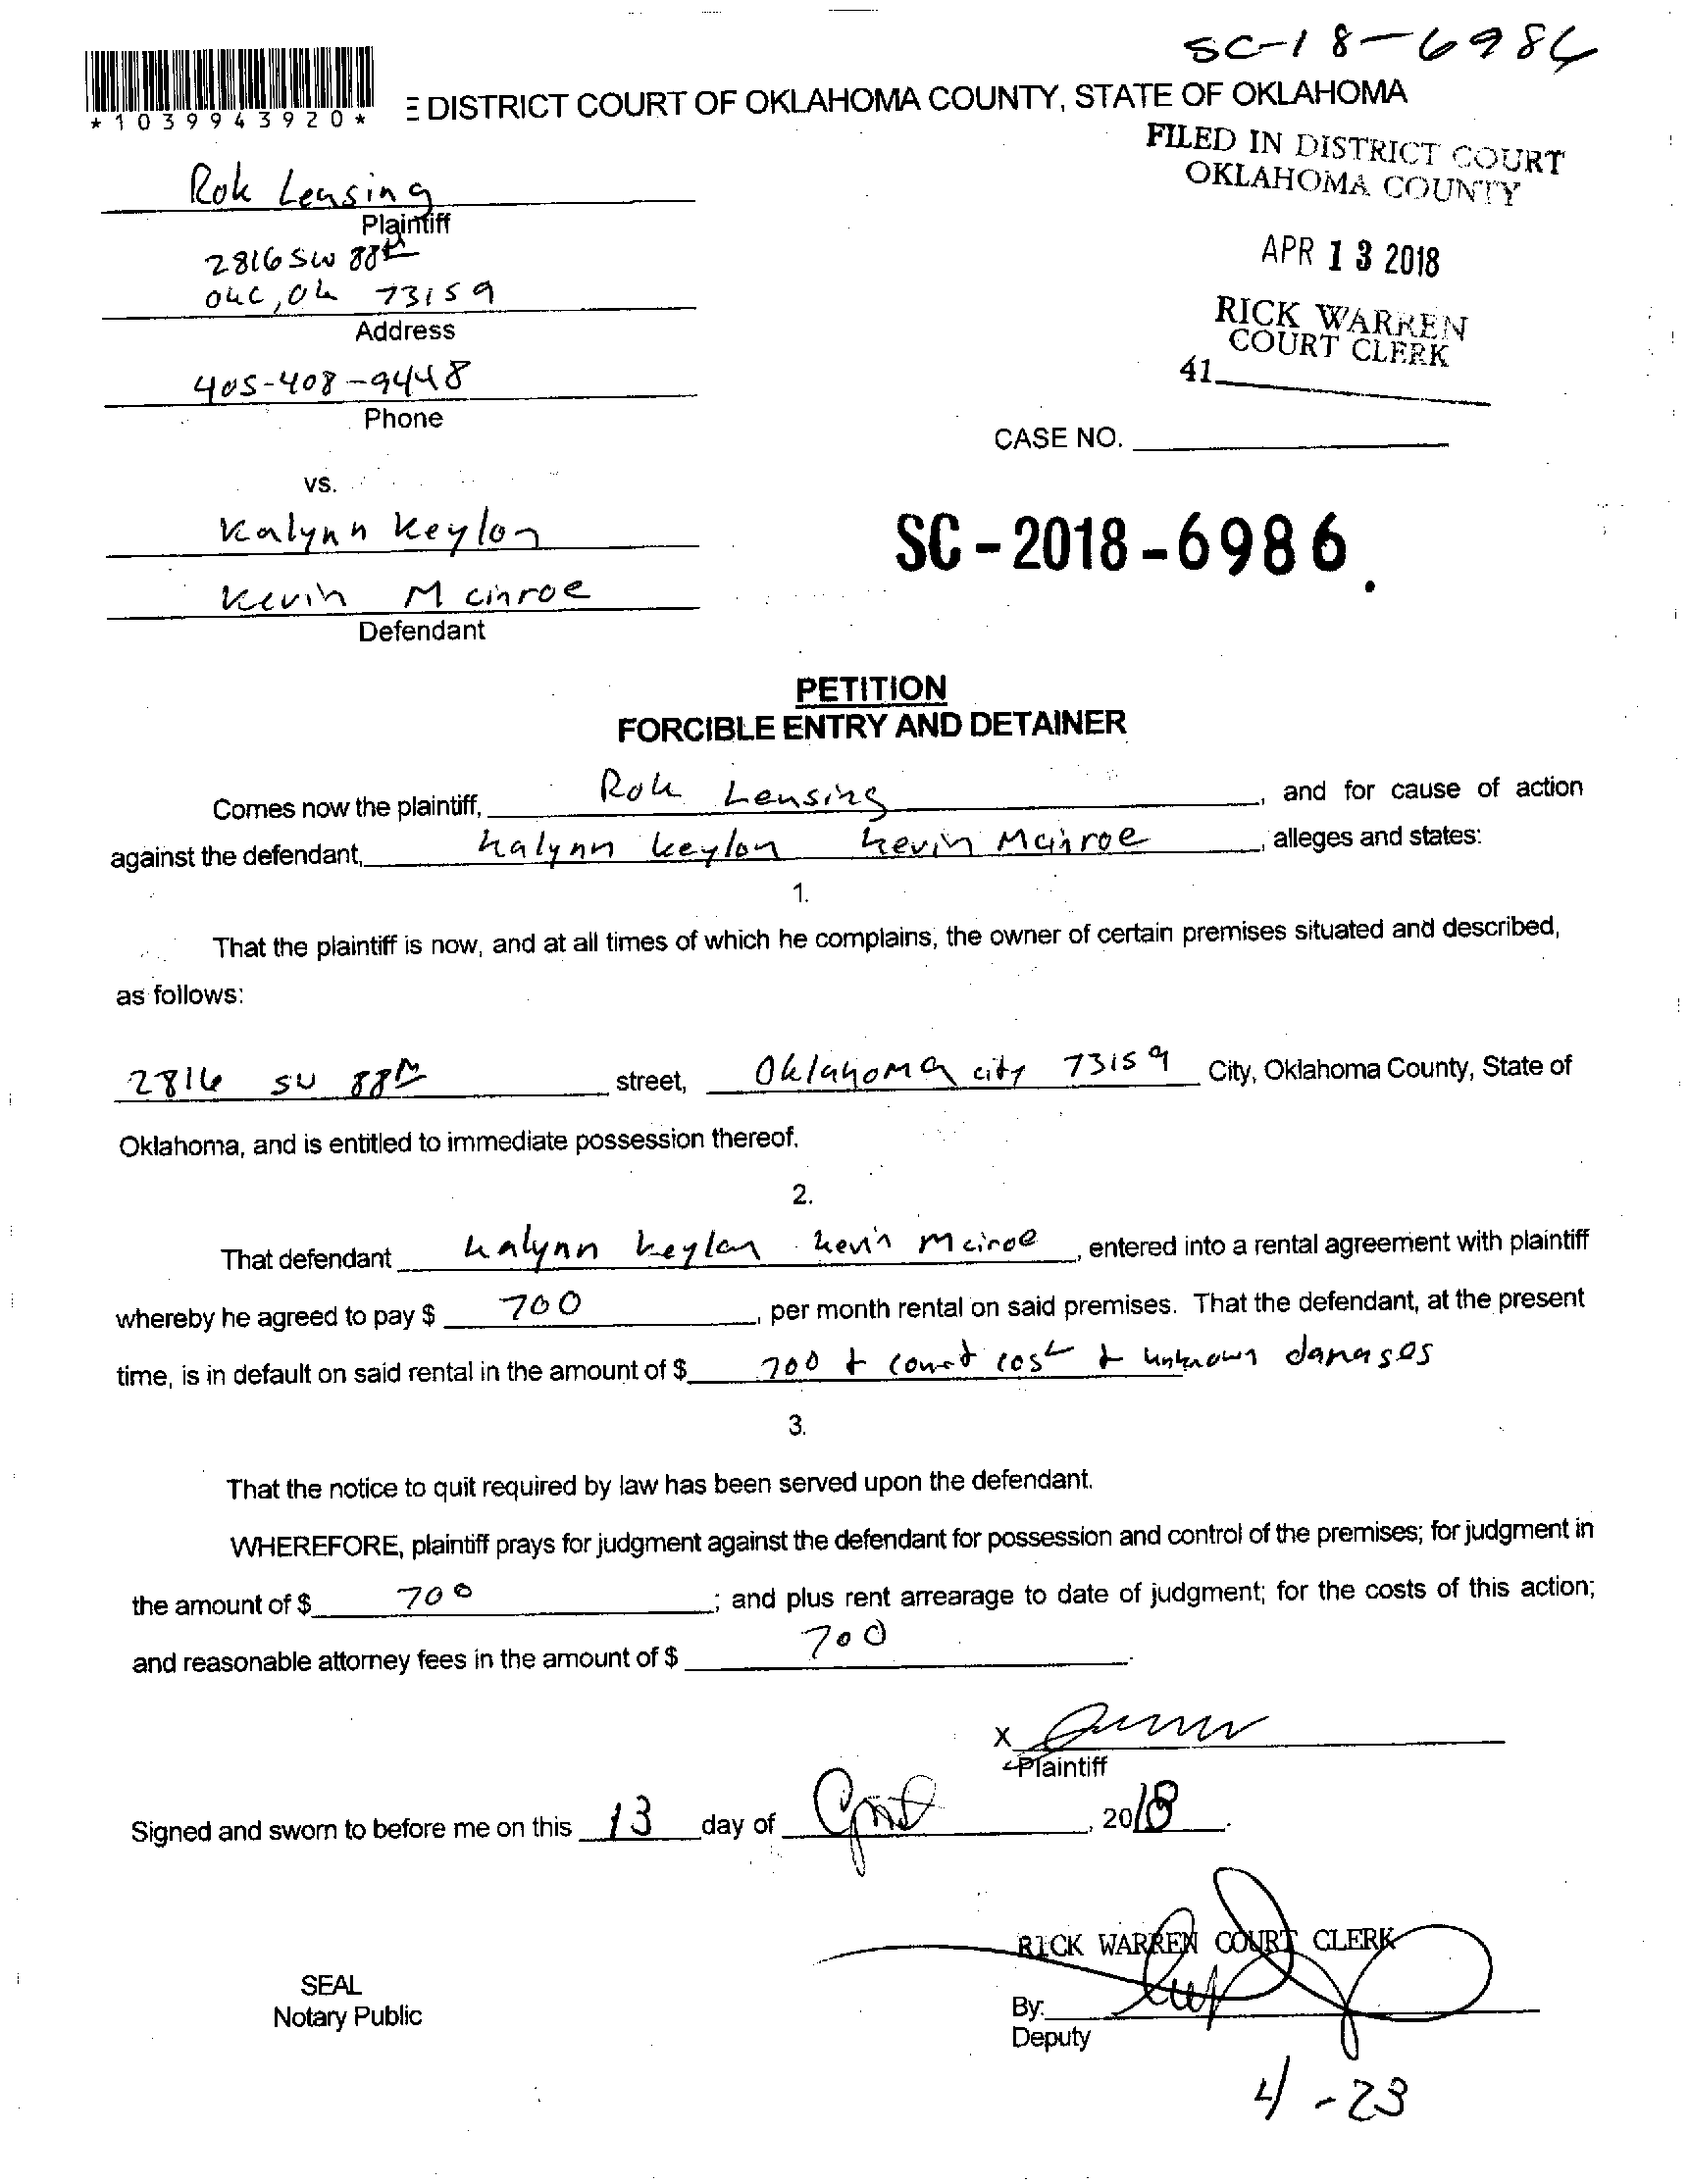 SC-18-6986
*1039943920*
E DISTRICT COURT OF OKLAHOMA COUNTY, STATE OF OKLAHOMA
FILED IN DISTRICT COURT
OKLAHOMA COUNTY
APR 13 2018
RICK WARREN
COURT CLERK
41
Rok Leasing
Plaintiff
2816 SW 88th
OKC, Ok 73159
Address
405-408-9448
Phone
CASE NO.
vs.
Kalynn Keylon
SC-2018-6986.
Kevin Mcinroe
Defendant
PETITION
FORCIBLE ENTRY AND DETAINER
Comes now the plaintiff, Rok Leasing, and for cause of action
against the defendant, Kalynn Keylon Kevin Mcinroe, alleges and states:
1.
That the plaintiff is now, and at all times of which he complains, the owner of certain premises situated and described,
as follows:
2816 SW 88th street, Oklahoma city 73159 City, Oklahoma County, State of
Oklahoma, and is entitled to immediate possession thereof.
2.
That defendant Kalynn Keylon Kevin Mciroe, entered into a rental agreement with plaintiff
whereby he agreed to pay $ 700, per month rental on said premises. That the defendant, at the present
time, is in default on said rental in the amount of $ 700 + court cost + unknown damages
3.
That the notice to quit required by law has been served upon the defendant.
WHEREFORE, plaintiff prays for judgment against the defendant for possession and control of the premises; for judgment in
the amount of $ 700; and plus rent arrearage to date of judgment; for the costs of this action;
and reasonable attorney fees in the amount of $ 700.
X
Plaintiff
Signed and sworn to before me on this 13 day of April, 2018.
RICK WARREN COURT CLERK
SEAL
Notary Public
By:
Deputy
4-23